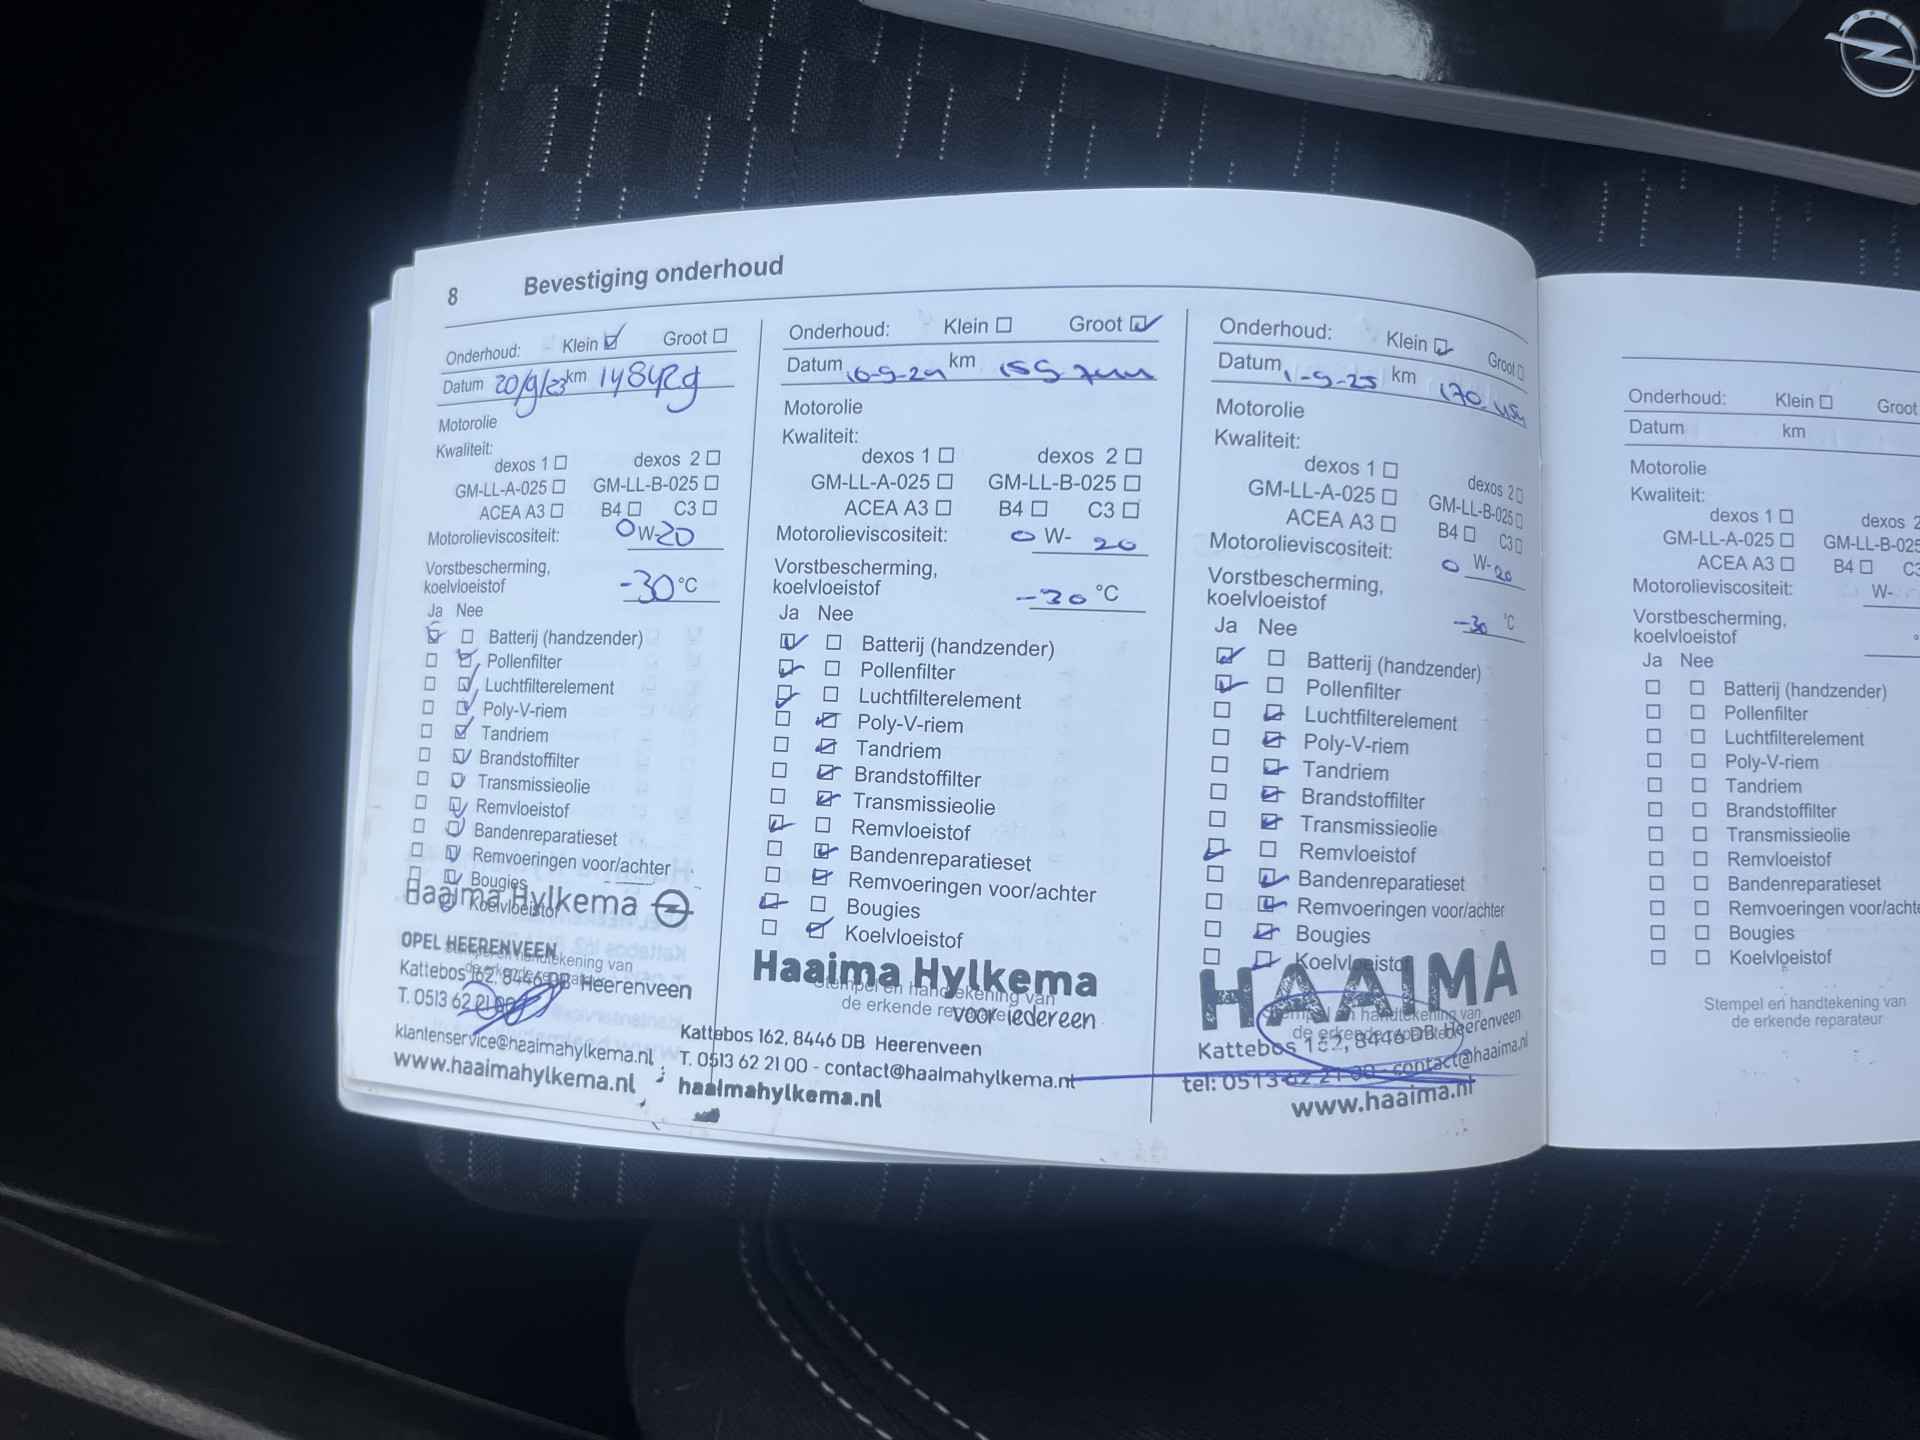 8 Bevestiging onderhoud
Onderhoud: Klein Groot
Datum 20/9/23 km 148429
Motorolie
Kwaliteit:
dexos 1 dexos 2
GM-LL-A-025 GM-LL-B-025
ACEA A3 B4 C3
Motorolieviscositeit: 0 W-20
Vorstbescherming,
koelvloeistof -30 °C
Ja Nee
Batterij (handzender)
Pollenfilter
Luchtfilterelement
Poly-V-riem
Tandriem
Brandstoffilter
Transmissieolie
Remvloeistof
Bandenreparatieset
Remvoeringen voor/achter
Bougies
Koelvloeistof
Haaima Hylkema
OPEL HEERENVEEN
Stempel en handtekening van
de erkende reparateur
Kattebos 162, 8446 DB Heerenveen
T. 0513 62 21 00
klantenservice@haaimahylkema.nl
www.haaimahylkema.nl
Onderhoud: Klein Groot
Datum 16-9-24 km
Motorolie
Kwaliteit:
dexos 1 dexos 2
GM-LL-A-025 GM-LL-B-025
ACEA A3 B4 C3
Motorolieviscositeit: 0 W- 20
Vorstbescherming,
koelvloeistof -30 °C
Ja Nee
Batterij (handzender)
Pollenfilter
Luchtfilterelement
Poly-V-riem
Tandriem
Brandstoffilter
Transmissieolie
Remvloeistof
Bandenreparatieset
Remvoeringen voor/achter
Bougies
Koelvloeistof
Haaima Hylkema
Stempel en handtekening van
de erkende reparateur
voor iedereen
Kattebos 162, 8446 DB Heerenveen
T. 0513 62 21 00 - contact@haaimahylkema.nl
haaimahylkema.nl
Onderhoud: Klein Groot
Datum 1-9-25 km
Motorolie
Kwaliteit:
dexos 1 dexos 2
GM-LL-A-025 GM-LL-B-025
ACEA A3 B4 C3
Motorolieviscositeit: 0 W-20
Vorstbescherming,
koelvloeistof -30 °C
Ja Nee
Batterij (handzender)
Pollenfilter
Luchtfilterelement
Poly-V-riem
Tandriem
Brandstoffilter
Transmissieolie
Remvloeistof
Bandenreparatieset
Remvoeringen voor/achter
Bougies
Koelvloeistof
HAAIMA
Stempel en handtekening van
de erkende reparateur
Kattebos 162, 8446 DB Heerenveen
tel: 0513 62 21 00 - contact@haaima.nl
www.haaima.nl
Onderhoud: Klein Groot
Datum km
Motorolie
Kwaliteit:
dexos 1 dexos 2
GM-LL-A-025 GM-LL-B-025
ACEA A3 B4 C3
Motorolieviscositeit: W-
Vorstbescherming,
koelvloeistof
Ja Nee
Batterij (handzender)
Pollenfilter
Luchtfilterelement
Poly-V-riem
Tandriem
Brandstoffilter
Transmissieolie
Remvloeistof
Bandenreparatieset
Remvoeringen voor/achte
Bougies
Koelvloeistof
Stempel en handtekening van
de erkende reparateur
OPEL